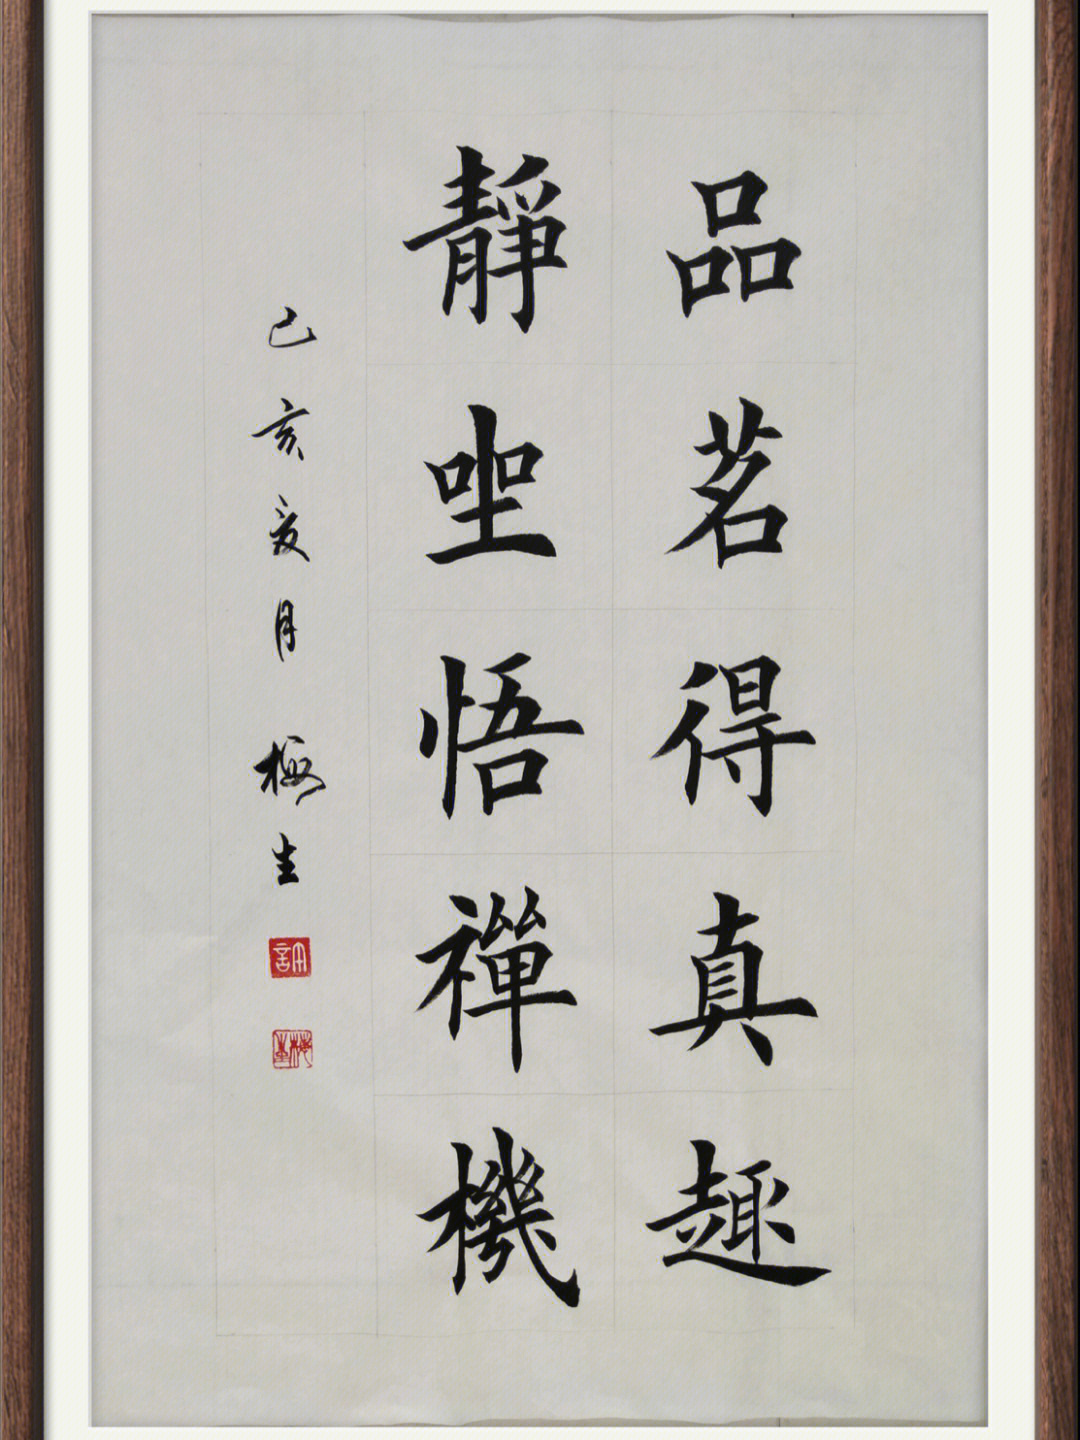 品茗得真趣
靜坐悟禪機
己亥夏月 梅生